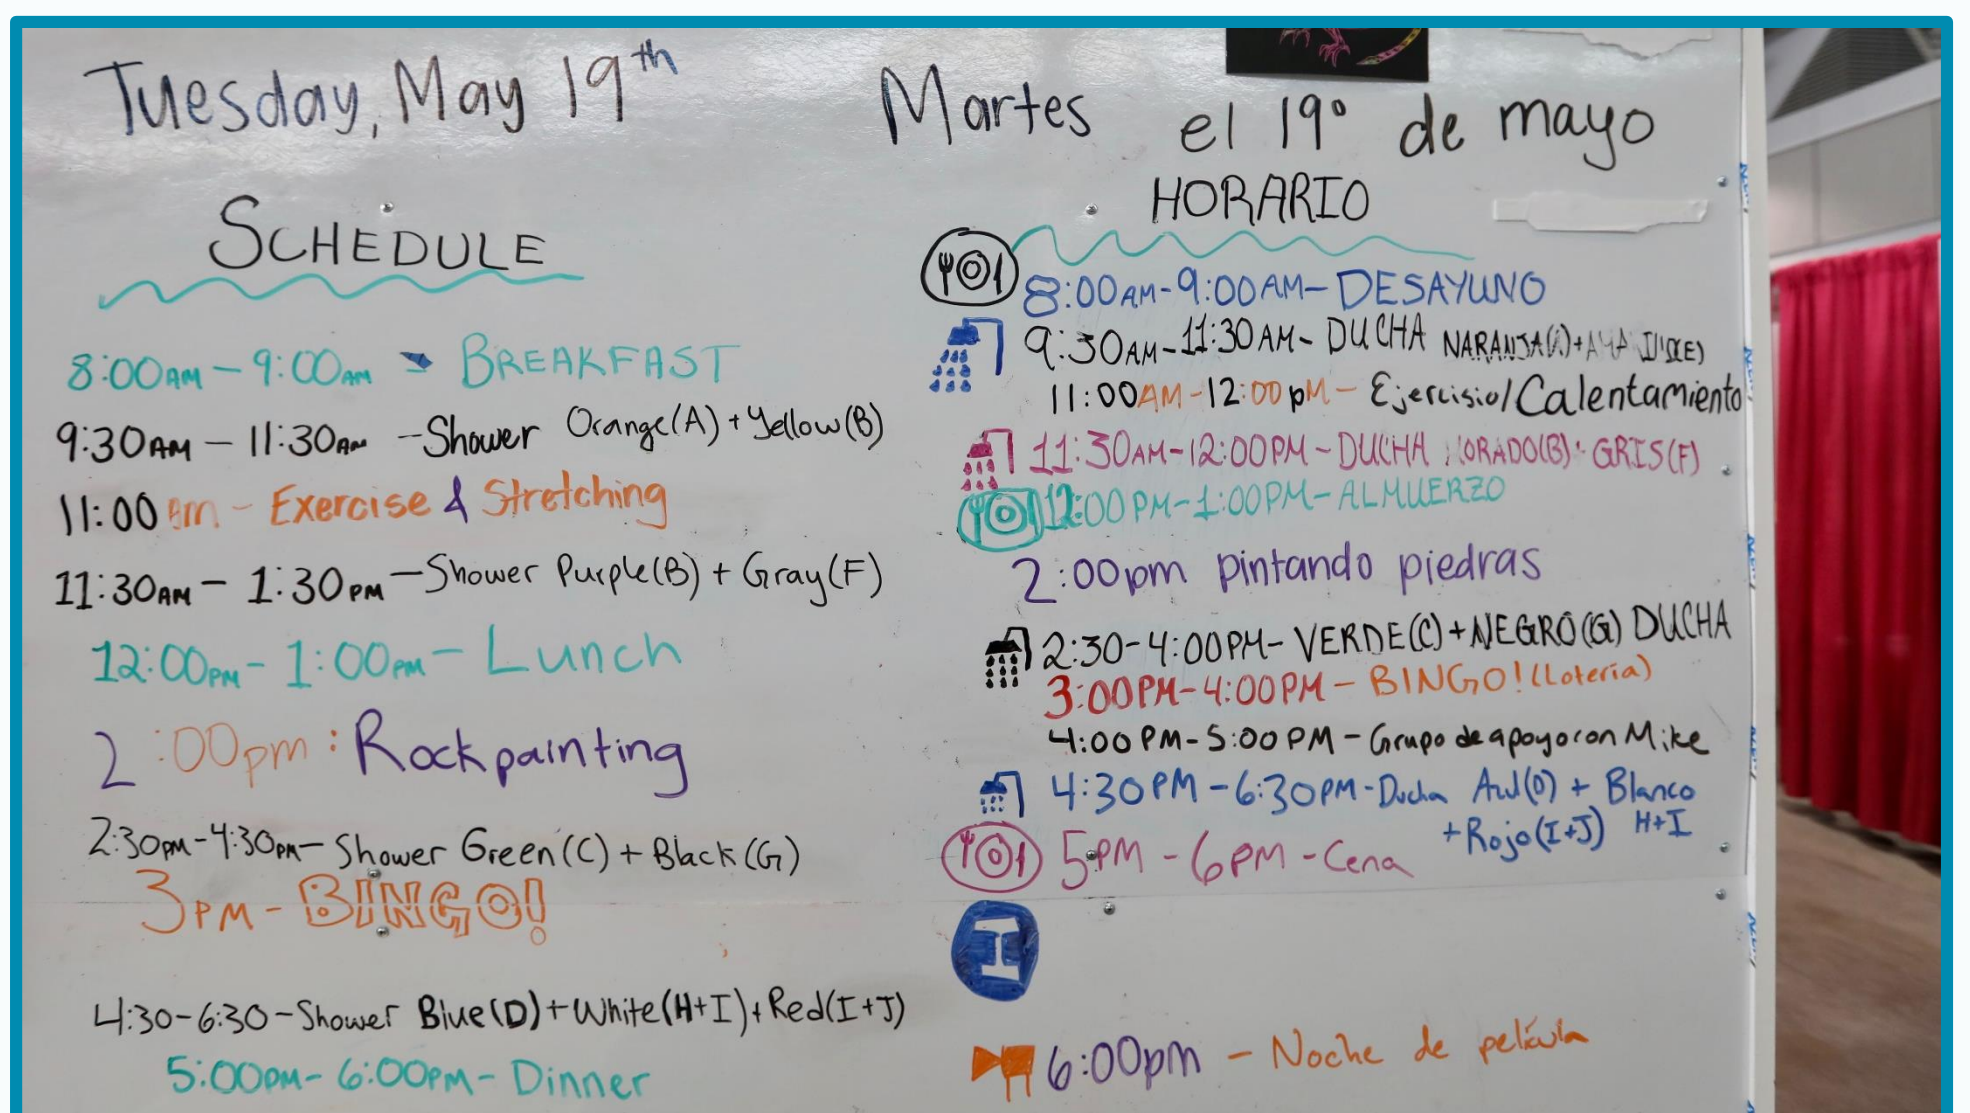 Tuesday, May 19th
SCHEDULE
8:00AM - 9:00AM → BREAKFAST
9:30AM - 11:30AM - Shower Orange(A) + Yellow(B)
11:00am - Exercise & Stretching
11:30AM - 1:30PM - Shower Purple(B) + Gray(F)
12:00PM - 1:00PM - Lunch
2:00pm: Rock painting
2:30PM - 4:30PM - Shower Green(C) + Black(G)
3PM - BINGO!
4:30 - 6:30 - Shower Blue(D) + White(H+I) + Red(I+J)
5:00PM - 6:00PM - Dinner
Martes el 19º de mayo
HORARIO
8:00AM - 9:00AM - DESAYUNO
9:30AM - 11:30AM - DUCHA NARANJA(A) +
11:00AM - 12:00pM - Ejercisio/Calentamiento
11:30AM - 12:00PM - DUCHA MORADO(B) GRIS(F)
12:00PM - 1:00PM - ALMUERZO
2:00pm pintando piedras
2:30 - 4:00PM - VERDE(C) + NEGRO(G) DUCHA
3:00PM - 4:00PM - BINGO! (Lotería)
4:00PM - 5:00PM - Grupo de apoyo con Mike
4:30PM - 6:30PM - Ducha Azul(D) + Blanco H+I
+ Rojo(I+J)
5PM - 6PM - Cena
I
6:00pm - Noche de película